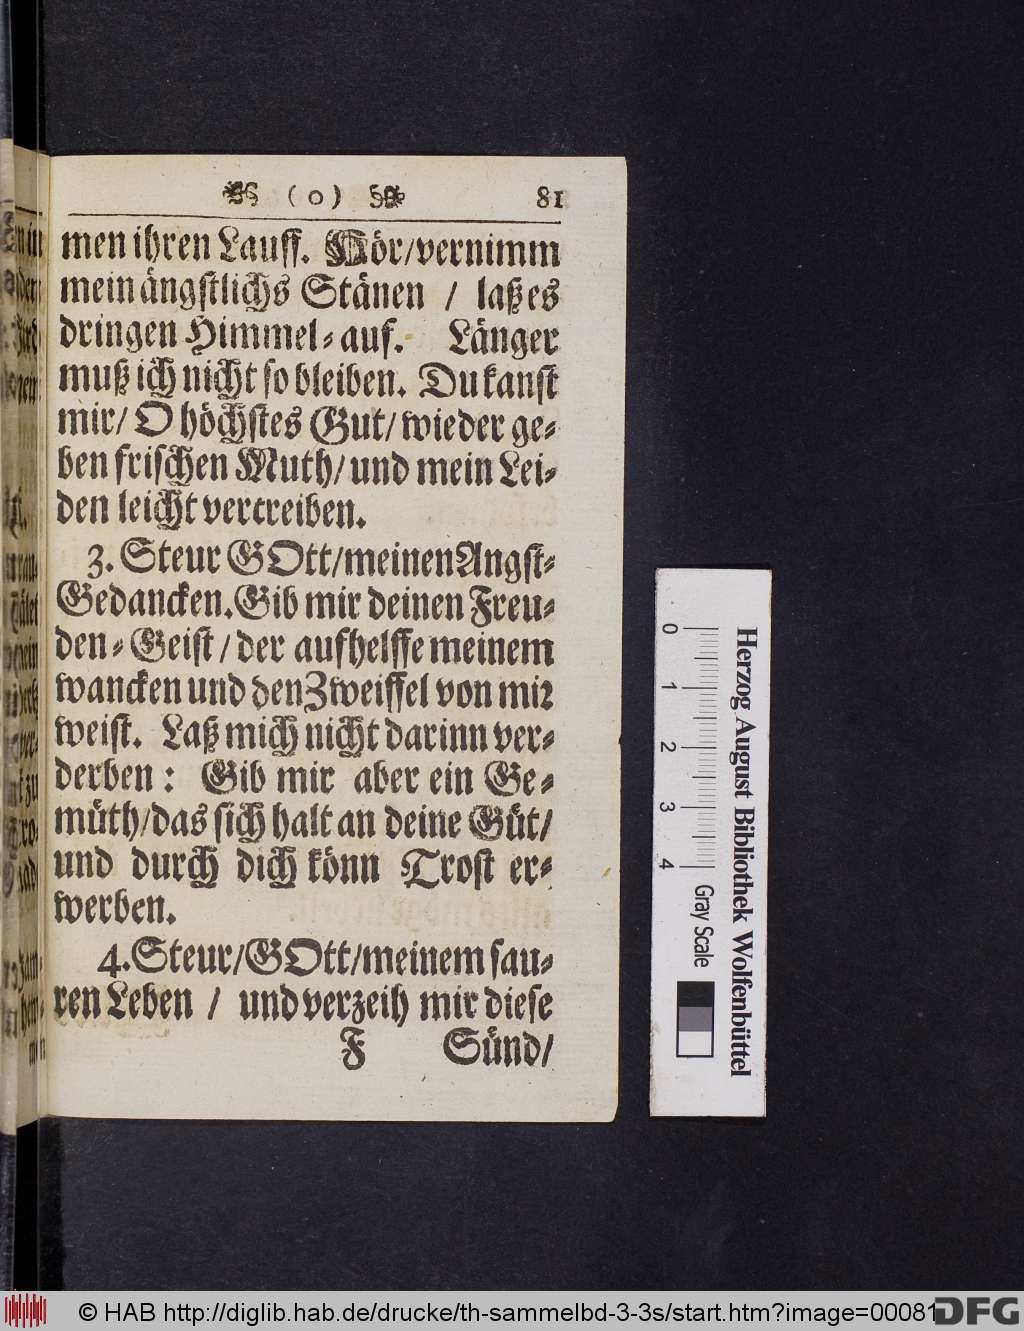 ( o ) 81
men ihren Lauff. Hör/vernimm
mein ängstlichs Stänen / laß es
dringen Himmel-auf. Länger
muß ich nicht so bleiben. Du kanst
mir/ O höchstes Gut/ wieder ge-
ben frischen Muth/ und mein Lei-
den leicht vertreiben.
3. Steur GOtt/meinen Angst-
Gedancken. Gib mir deinen Freu-
den-Geist / der aufhelffe meinem
wancken und den Zweiffel von mir
weist. Laß mich nicht darinn ver-
derben: Gib mir aber ein Ge-
müth/das sich halt an deine Güt/
und durch dich könn Trost er-
werben.
4. Steur/GOtt/meinem sau-
ren Leben / und verzeih mir diese
F Sünd/
0 1 2 3 4
Gray Scale
Herzog August Bibliothek Wolfenbüttel
© HAB http://diglib.hab.de/drucke/th-sammelbd-3-3s/start.htm?image=00081
DFG